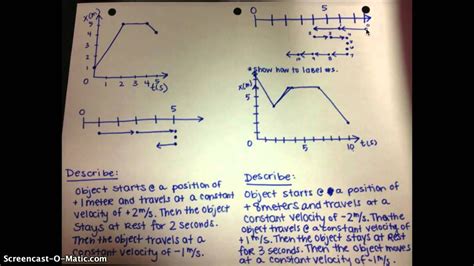 x(m)
5
4
3
2
1
1 2 3 4 5
t(s)
0 5
Describe:
Object starts @ a position of
+1 meter and travels at a constant
velocity of +2m/s. Then the object
stays at Rest for 2 seconds.
Then the object travels at a
constant velocity of -1m/s.
0 5
*show how to label #s.
x(m)
5
5 10
t(s)
Describe:
Object starts @ a position of
+8meters and travels at a
constant velocity of -2m/s. Then the
object travels @ a constant velocity of
+1m/s. Then the object stays at Rest
for 3 seconds. Then the object moves
at a constant velocity of -1m/s.
Screencast-O-Matic.com